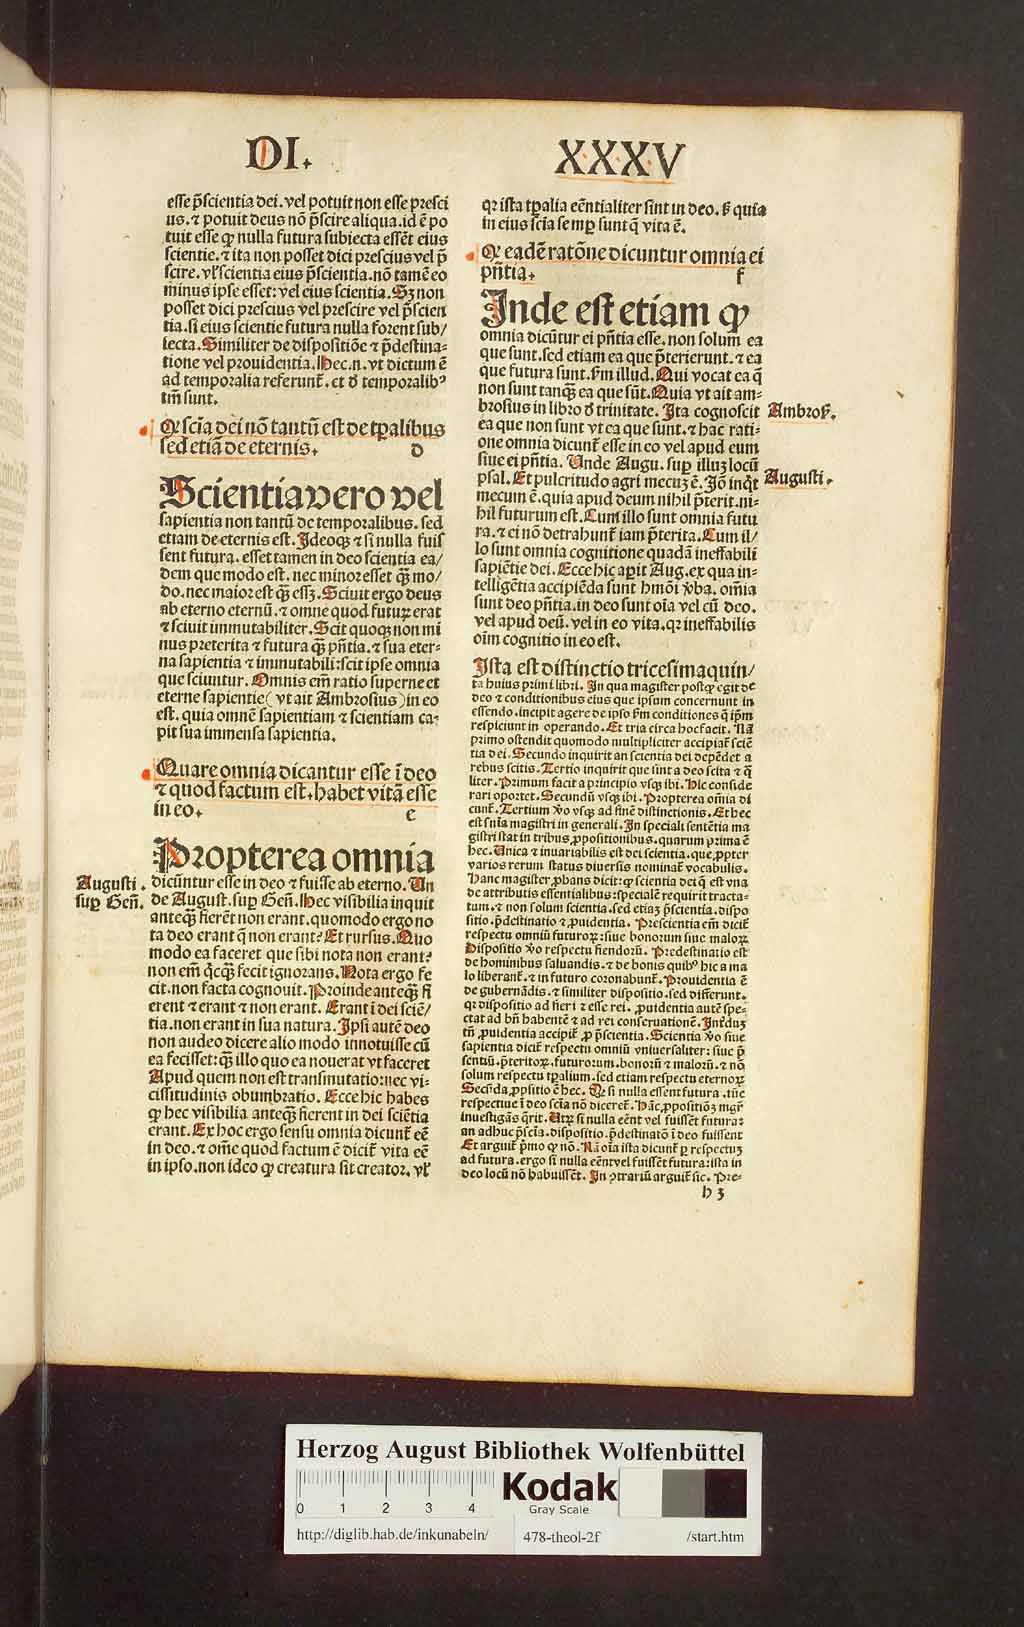 DI. XXXV
esse p̄scientia dei. vel potuit non esse presci
us. ⁊ potuit deus nō p̄scire aliqua. id ē po
tuit esse ꝙ nulla futura subiecta essēt eius
scientie. ⁊ ita non posset dici prescius vel p̄
scire. vl̓ scientia eius p̄scientia. nō tamē eo
minus ipse esset: vel eius scientia. Sꝫ non
posset dici prescius vel prescire vel p̄scien
tia. si eius scientie futura nulla forent sub/
iecta. Similiter de dispositiōe ⁊ p̄destina⸗
tione vel prouidentia. Hec.n. vt dictum ē
ad temporalia referunt̄. et ð temporalibꝰ
tm̄ sunt.
Qꝛ scīa dei nō tantū est de tꝑalibus
sed etiā de eternis. d
Scientia vero vel
sapientia non tantū de temporalibus. sed
etiam de eternis est. Ideoqꝫ ⁊ si nulla fuis
sent futura. esset tamen in deo scientia ea/
dem que modo est. nec minor esset qꝫ̄ mo/
do. nec maior est qꝫ̄ essꝫ. Sciuit ergo deus
ab eterno eternū. ⁊ omne quod futuꝝ erat
⁊ sciuit immutabiliter. Scit quoqꝫ non mi
nus preterita ⁊ futura qꝫ̄ pn̄tia. ⁊ sua eter⸗
na sapientia ⁊ immutabili: scit ipse omnia
que sciuntur. Omnis em̄ ratio superne et
eterne sapientie (vt ait Ambrosius) in eo
est. quia omnē sapientiam ⁊ scientiam ca⸗
pit sua immensa sapientia.
Quare omnia dicantur esse ī deo
⁊ quod factum est. habet vitā esse
in eo. e
Propterea omnia
Augusti.
suꝑ Gen̄.
dicūntur esse in deo ⁊ fuisse ab eterno. Vn
de August. suꝑ Gen̄. Hec visibilia inquit
anteqꝫ̄ fierēt non erant. quomodo ergo no
ta deo erant q̄ non erant? Et rursus. Quo
modo ea faceret que sibi nota non erant?
non em̄ q̇cqꝫ̄ fecit ignorans. Nota ergo fe
cit. non facta cognouit. Proinde anteqꝫ̄ fi
erent ⁊ erant ⁊ non erant. Erant ī dei sciē/
tia. non erant in sua natura. Ipsi autē deo
non audeo dicere alio modo innotuisse cū
ea fecisset: qꝫ̄ illo quo ea nouerat vt faceret
Apud quem non est transmutatio: nec vi⸗
cissitudinis obumbratio. Ecce hic habes
ꝙ hec visibilia anteqꝫ̄ fierent in dei sciētia
erant. Ex hoc ergo sensu omnia dicunt̄ eē
in deo. ⁊ om̄e quod factum ē dicit̄ vita eē
in ipso. non ideo ꝙ creatura sit creator. vl̓
qꝛ ista tꝑalia eēntialiter sint in deo. sꝫ quia
in eius scīa semꝑ sunt q̄ vita ē.
Qꝛ eadē ratōne dicuntur omnia ei
pn̄tia. f
Inde est etiam ꝙ
omnia dicūtur ei pn̄tia esse. non solum ea
que sunt. sed etiam ea que p̄terierunt. ⁊ ea
que futura sunt. ẜm illud. Qui vocat ea q̄
non sunt tanqꝫ̄ ea que sūt. Quia vt ait am⸗
brosius in libro ð trinitate. Ita cognoscit
Ambroſ.
ea que non sunt vt ea que sunt. ⁊ hac rati⸗
one omnia dicunt̄ esse in eo vel apud eum
siue ei pn̄tia. Vnde Augu. suꝑ illuꝫ locū
psal. Et pulcritudo agri mecuꝫ ē. Iō inq̇t
Augusti.
mecum ē. quia apud deum nihil p̄terit. ni⸗
hil futurum est. Cum illo sunt omnia futu
ra. ⁊ ei nō detrahunt̄ iam p̄terita. Cum il/
lo sunt omnia cognitione quadā ineffabili
sapiētie dei. Ecce hic aꝑit Aug. ex qua in⸗
telligētia accipiēda sunt hmōi v̓ba. oīmia
sunt deo pn̄tia. in deo sunt oīa vel cū deo.
vel apud deū. vel in eo vita. qꝛ ineffabilis
oīm cognitio in eo est.
Ista est distinctio tricesimaquin/
ta huius primi libri. In qua magister postꝙ egit de
deo ⁊ conditionibus eius que ipsum concernunt in
essendo. incipit agere de ipso ẜm conditiones q̄ ipm̄
respiciunt in operando. Et tria circa hoc facit. Nā
primo ostendit quomodo multipliciter accipiat̄ sciē
tia dei. Secundo inquirit an scientia dei depēdet a
rebus scitis. Tertio inquirit que sint a deo scita ⁊ q̄
liter. Primum facit a principio vsqꝫ ibi. Hic conside
rari oportet. Secundū vsqꝫ ibi. Propterea om̄ia di
cunt̄. Tertium v̓o vsqꝫ ad finē distinctionis. Et hec
est sn̄ia magistri in generali. In speciali sententia ma
gistri stat in tribus ꝓpositionibus. quarum prima ē
hec. Unica ⁊ inuariabilis est dei scientia. que ꝓpter
varios rerum status diuersis nominat̄ vocabulis.
Hanc magister ꝓbans dicit: ꝙ scientia dei q̄ est vna
de attributis essentialibus: specialē requirit tracta⸗
tum. ⁊ non solum scientia. sed etiaꝫ p̄scientia. dispo
sitio. p̄destinatio ⁊ ꝓuidentia. Prescientia em̄ dicit̄
respectu omniū futuroꝝ: siue bonorum siue maloꝝ.
Dispositio v̓o respectu fiendorū. Predestinatio est
de hominibus saluandis. ⁊ de bonis quibꝰ hic a ma
lo liberant̄. ⁊ in futuro coronabunt̄. Prouidentia ē
de gubernādis. ⁊ similiter dispositio. sed differunt.
qꝛ dispositio ad fieri ⁊ esse rei. ꝓuidentia autē spe⸗
ctat ad bn̄ habentē ⁊ ad rei conseruationē. Interduꝫ
tn̄ ꝓuidentia accipit̄ ꝓ p̄scientia. Scientia v̓o siue
sapientia dicit̄ respectu omniū vniuersaliter: siue p̄
sentiū. p̄teritoꝝ. futurorum. bonorū ⁊ malorū. ⁊ nō
solum respectu tꝑalium. sed etiam respectu eternoꝝ
Secūda ꝓpositio ē hec. Qꝛ si nulla essent futura. tūc
respectiue ī deo scīa nō diceret̄. Hāc ꝓpositiōꝫ mgr̄
inuestigās q̄rit. Utꝝ si nulla eēnt vel fuissēt futura:
an adhuc p̄scīa. dispositio. p̄destinatō ī deo fuissent
Et arguit p̄mo ꝙ nō. Nā oīa ista dicunt̄ ꝑ respectuꝫ
ad futura. ergo si nulla eēnt vel fuissēt futura: ista in
deo locū nō habuissēt. In ꝯtrariū arguit̄ sic. Pre⸗
h 3
Herzog August Bibliothek Wolfenbüttel
0 1 2 3 4
Kodak
Gray Scale
http://diglib.hab.de/inkunabeln/ 478-theol-2f /start.htm